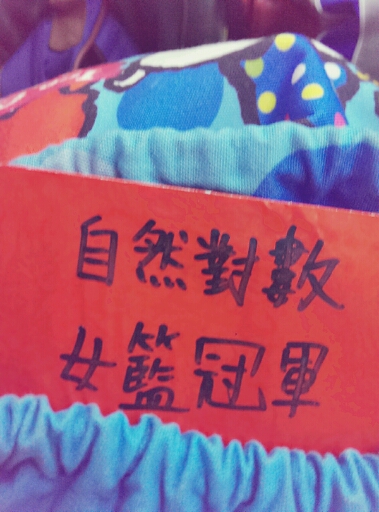 自然對數
女籃冠軍